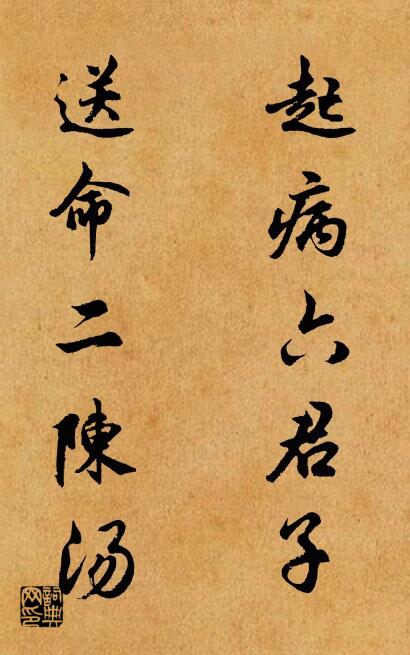 起病六君子
送命二陳湯
詞典网印